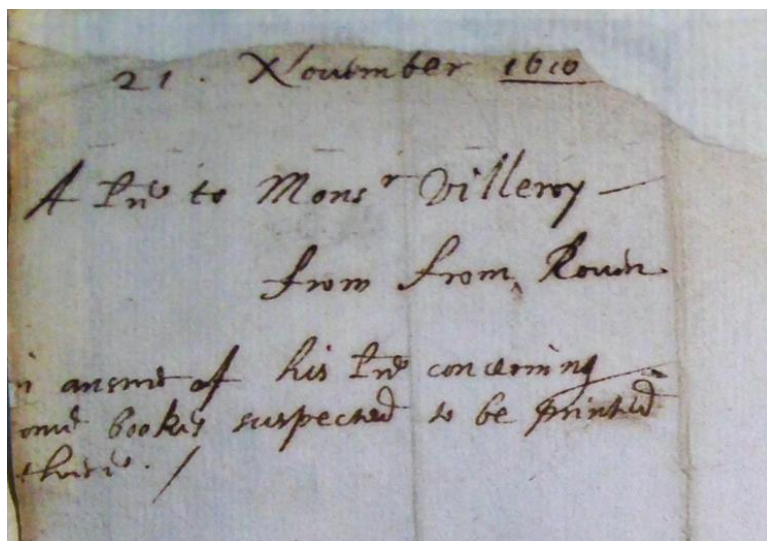 21. November 1610
A Lre to Monsr Villeroy
from from, Rouen
n answer of his Lre concerning
ome bookes suspected to be printed
there. /